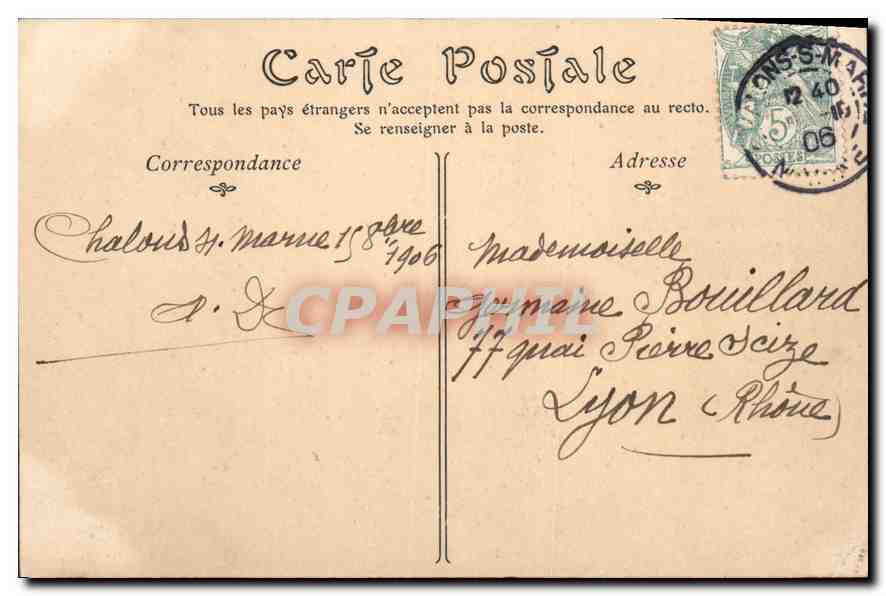 Carte Postale
Tous les pays étrangers n'acceptent pas la correspondance au recto.
Se renseigner à la poste.
Correspondance
Adresse
Chalons s/. Marne 15 8bre
1906
Mademoiselle
Germaine Bouillard
77 quai Pierre Scize
Lyon (Rhône)
CPAPHIL
ALONS-S-MARNE
12 40
15
06
5c
POSTES